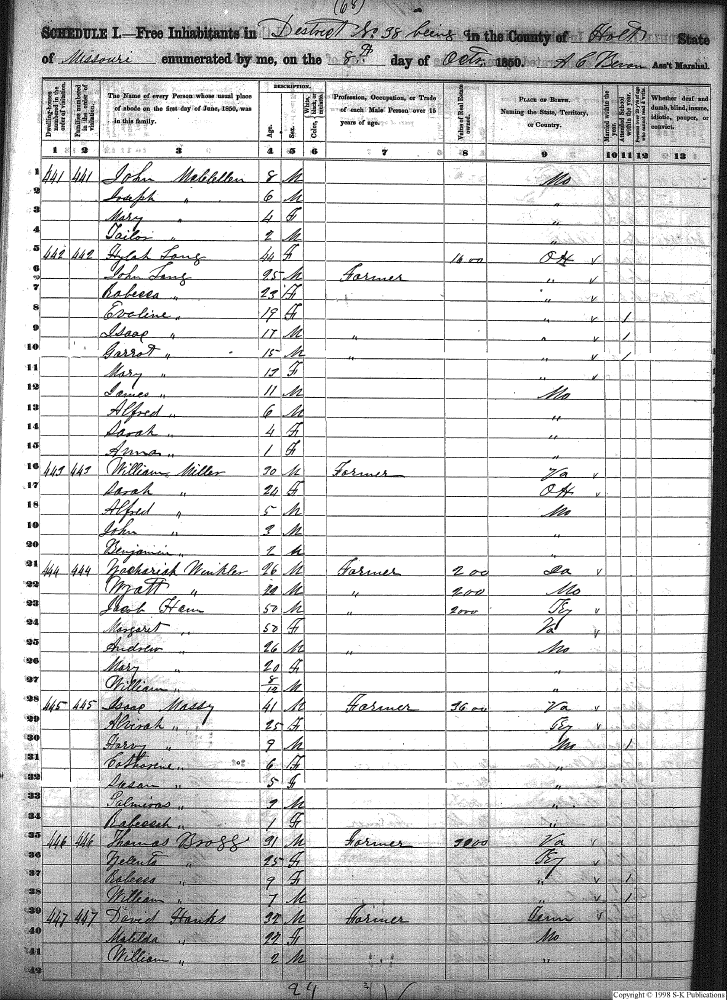 (68)
SCHEDULE I.—Free Inhabitants in District No 38 being in the County of Holt State
of Missouri enumerated by me, on the 8th day of Octr. 1850. A C Bevan Ass't Marshal.
Dwelling-houses numbered in the order of visitation. Families numbered in the order of visitation. The Name of every Person whose usual place of abode on the first day of June, 1850, was in this family. DESCRIPTION. Age. Sex. Color, White, black, or mulatto. Profession, Occupation, or Trade of each Male Person over 15 years of age. Value of Real Estate owned. PLACE OF BIRTH. Naming the State, Territory, or Country. Married within the year. Attended School within the year. Whether deaf and dumb, blind, insane, idiotic, pauper, or convict.
1 2 3 4 5 6 7 8 9 10 11 12 13
1 441 441 John McClellen 8 M Mo
2 Joseph " 6 M "
3 Mary " 4 F "
4 Tailor " 2 M "
5 442 442 Long 44 F 1600 OH
6 John Long 25 M Farmer "
7 Rabecca " 23 F "
8 Evaline " 19 F " 1
9 Isaac " 17 M " " 1
10 Garrot " 15 M " " 1
11 Mary " 13 F "
12 James " 11 M Mo
13 Alfred " 6 M "
14 Sarah " 4 F "
15 Anna " 1 F "
16 443 443 William Miller 30 M Farmer Va
17 Sarah " 24 F OH
18 Alfred " 5 M Mo
19 John " 3 M "
20 Benjamin " 2 M "
21 444 444 Zachariah Winkler 26 M Farmer 200
22 Wyatt " 20 M " 200 Mo
23 Jacob Ham 50 M " 2000 Ky
24 Margaret " 50 F Va
25 Andrew " 26 M " Mo
26 Mary " 20 F "
27 William " 8/12 M "
28 445 445 Isaac Massy 41 M Farmer 3600 Va
29 " 25 F Ky
30 Harvy " 9 M Mo 1
31 Catharine " 6 F "
32 Susan " 5 F "
33 " 3 M "
34 " 1 F "
35 446 446 Thomas Brogg 31 M Farmer Va
36 " 25 F Ky
37 Rabecca " 9 F " 1
38 William " 7 M " 1
39 447 447 David Hanks 32 M Farmer Tenn
40 Matilda " 22 F Mo
41 William " 2 M "
42
Copyright © 1998 S-K Publications